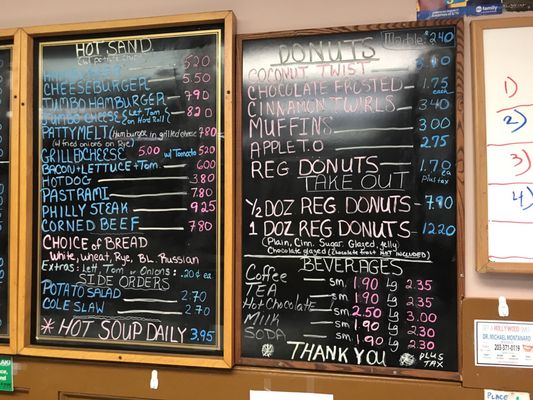 HOT SAND
HAMBURGER 5.20
CHEESEBURGER 5.50
JUMBO HAMBURGER 7.90
JUMBO CHEESE (Let, Tom on Hard Roll) 8.20
PATTY MELT (Hamburger in grilled cheese w/ fried onions on Rye) 7.80
GRILLED CHEESE 5.00 w/ Tomato 5.20
BACON + LETTUCE + Tom 6.00
HOT DOG 3.80
PASTRAMI 7.80
PHILLY STEAK 9.25
CORNED BEEF 7.80
CHOICE of BREAD
White, wheat, Rye, BL. Russian
Extras: Lett, Tom or Onions: .20¢ ea
SIDE ORDERS
POTATO SALAD 2.70
COLE SLAW 2.70
* HOT SOUP DAILY 3.95
DONUTS
Marble $2.40
COCONUT TWIST
CHOCOLATE FROSTED 1.75 each
CINNAMON TWIRLS 3.40
MUFFINS 3.00
APPLE T.O 2.75
REG DONUTS 1.70 ea
TAKE OUT Plus tax
1/2 DOZ REG DONUTS 7.90
1 DOZ REG DONUTS 12.20
(Plain, Cinn. Sugar. Glazed, Jelly)
Chocolate glazed (Chocolate frost NOT INCLUDED)
BEVERAGES
Coffee sm 1.90 Lg 2.35
TEA sm 1.90 Lg 2.35
Hot Chocolate sm 2.50 Lg 3.00
MILK sm 1.90 Lg 2.30
SODA sm 1.90 Lg 2.30
THANK YOU PLUS TAX
1)
2)
3)
4)
abc family
HOLLYWOOD
DR. MICHAEL MONTANARO
203-371-0119